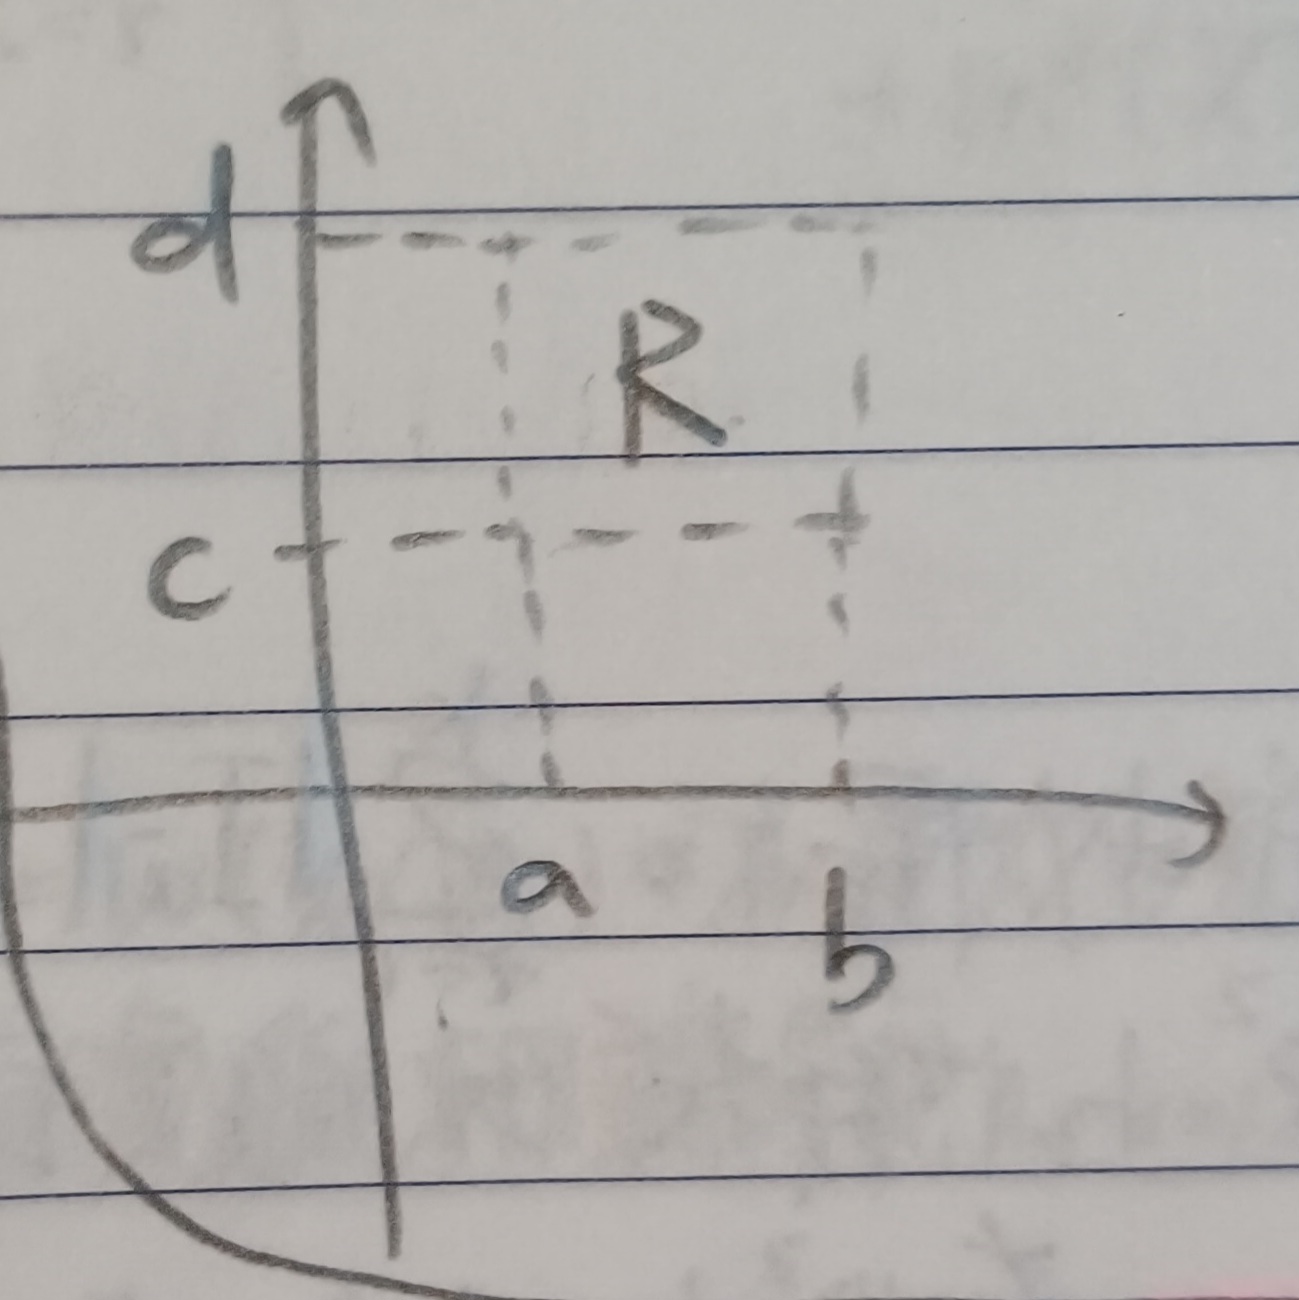 d
R
c
a
b